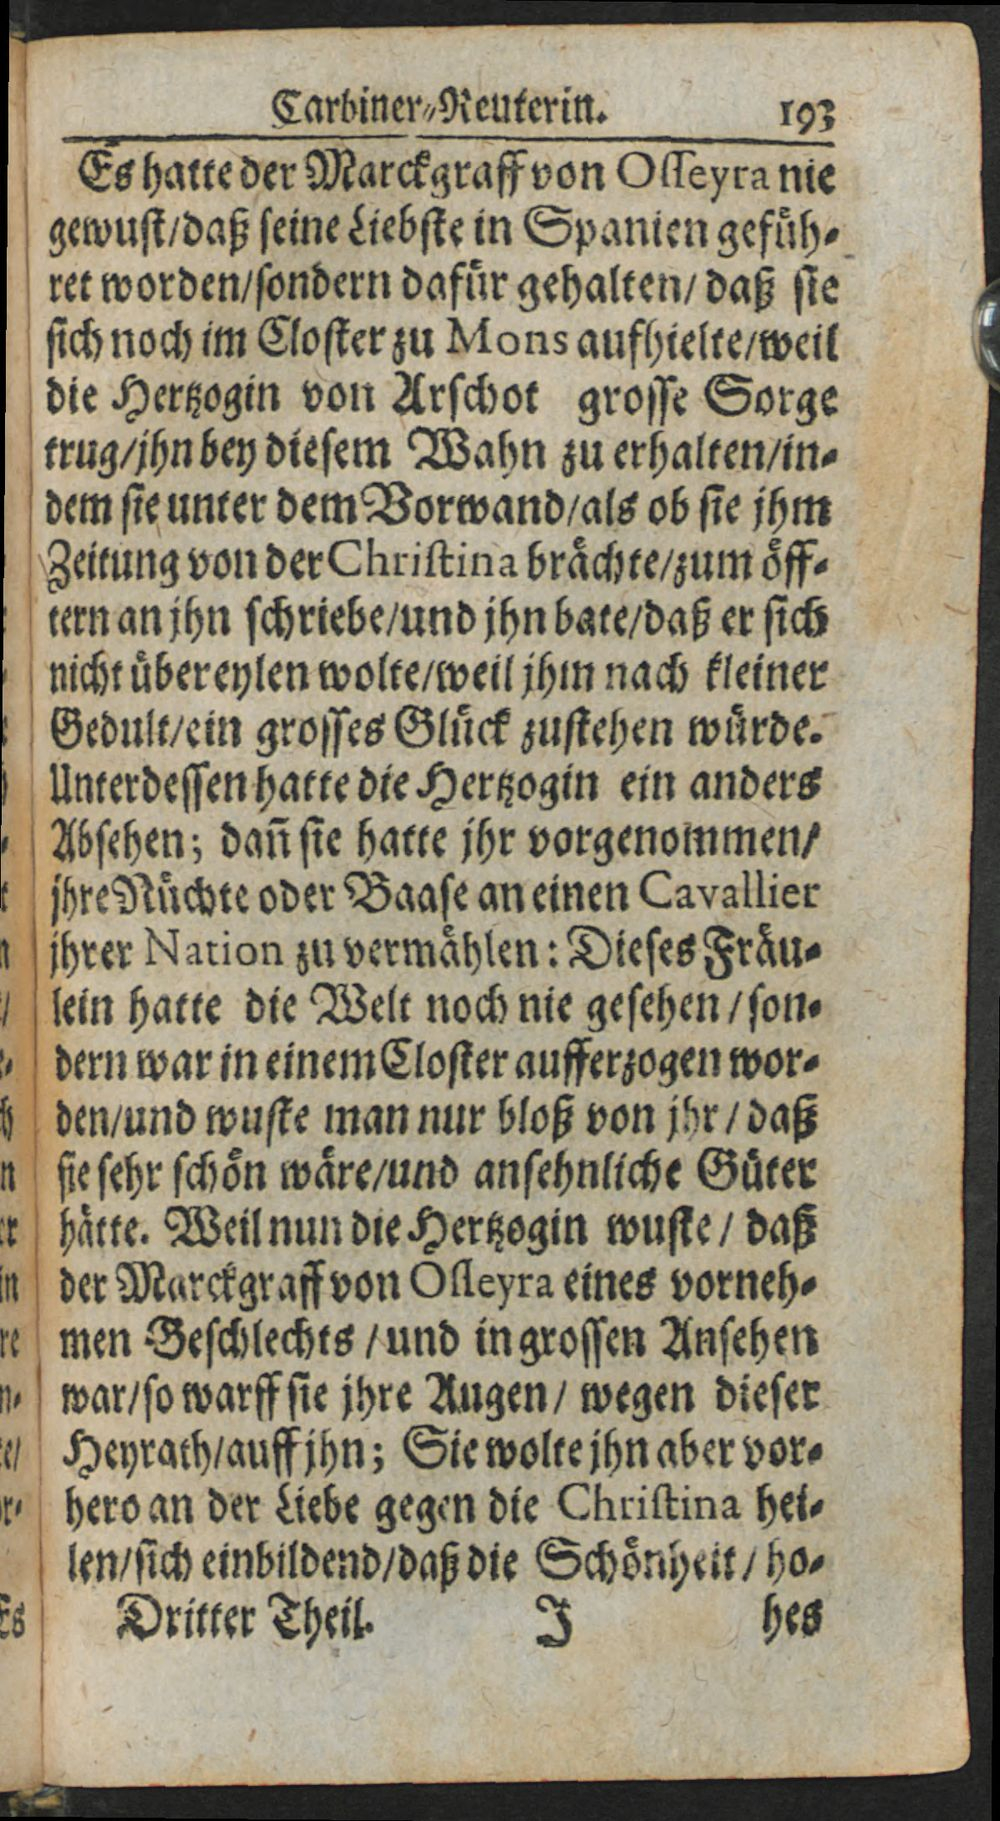 Carbiner-Reuterin. 193
Es hatte der Marckgraff von Osseyra nie
gewust/daß seine Liebste in Spanien gefüh-
ret worden/sondern dafür gehalten/ daß sie
sich noch im Closter zu Mons aufhielte/weil
die Hertzogin von Arschot grosse Sorge
trug/jhn bey diesem Wahn zu erhalten/in-
dem sie unter dem Vorwand/als ob sie jhm
Zeitung von der Christina brächte/zum öff-
tern an jhn schriebe/und jhn bate/daß er sich
nicht übereylen wolte/weil jhm nach kleiner
Gedult/ein grosses Glück zustehen würde.
Unterdessen hatte die Hertzogin ein anders
Absehen; dañ sie hatte jhr vorgenommen/
jhre Nüchte oder Baase an einen Cavallier
jhrer Nation zu vermählen: Dieses Fräu-
lein hatte die Welt noch nie gesehen / son-
dern war in einem Closter aufferzogen wor-
den/und wuste man nur bloß von jhr / daß
sie sehr schön wäre/und ansehnliche Güter
hätte. Weil nun die Hertzogin wuste / daß
der Marckgraff von Osseyra eines vorneh-
men Geschlechts / und in grossen Ansehen
war/so warff sie jhre Augen/ wegen dieser
Heyrath/auff jhn; Sie wolte jhn aber vor-
hero an der Liebe gegen die Christina hei-
len/sich einbildend/daß die Schönheit / ho-
Dritter Theil. J hes